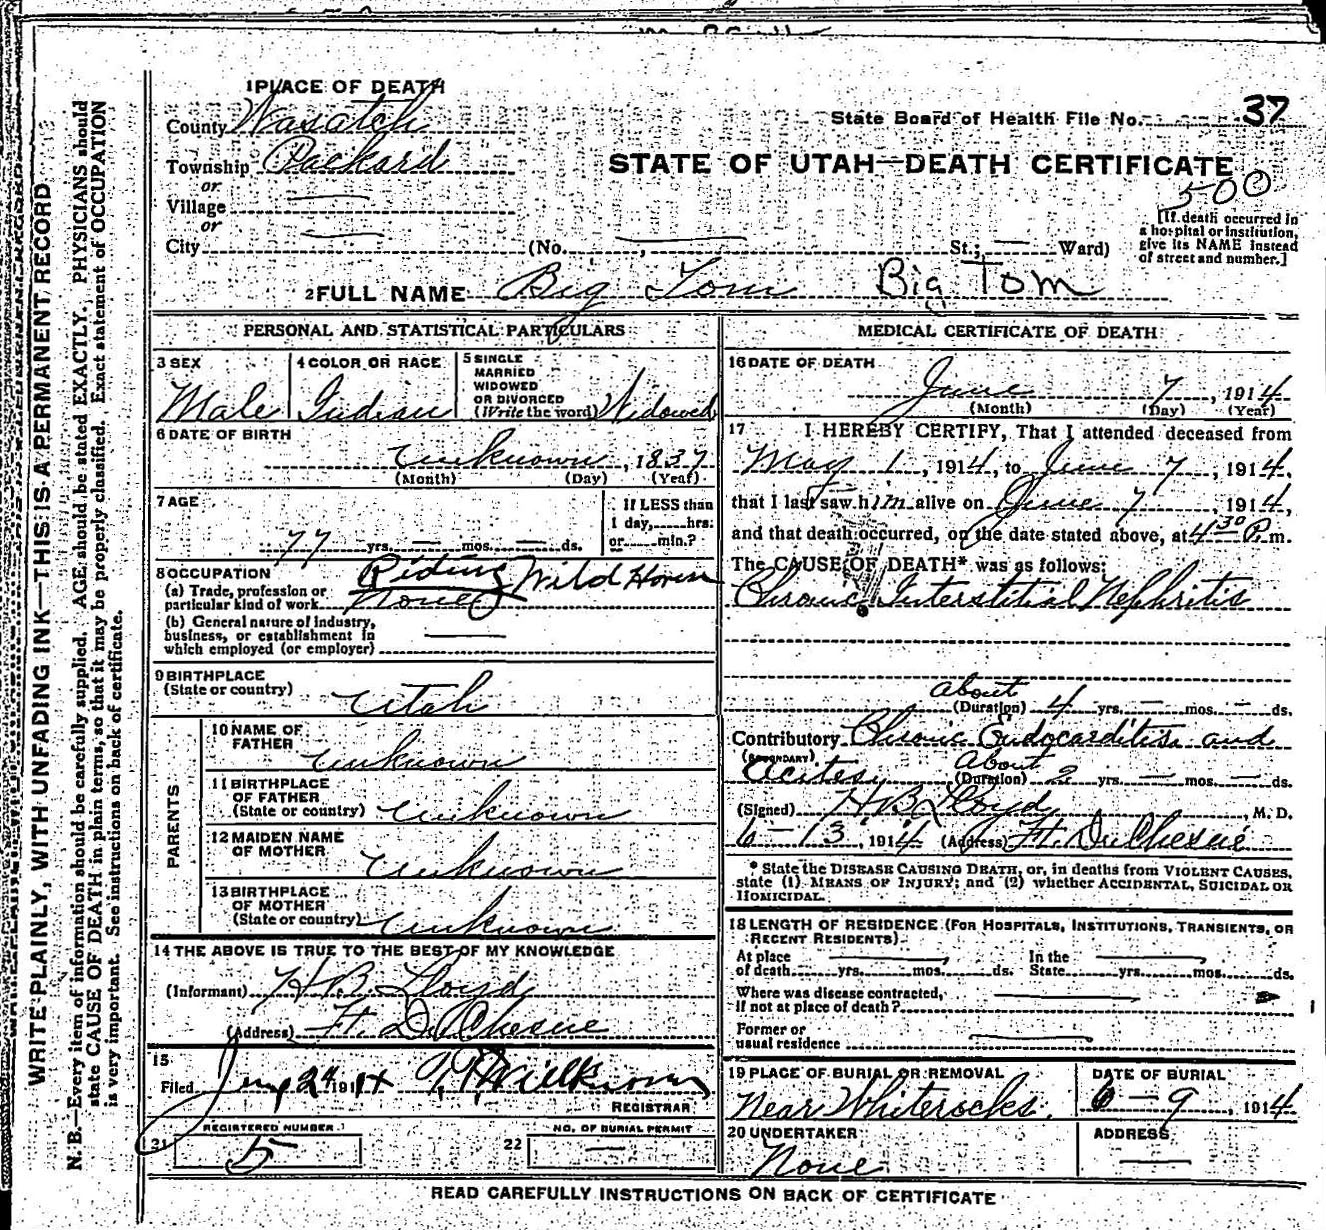 1 PLACE OF DEATH
County Wasatch
State Board of Health File No. 37
Township Packard
STATE OF UTAH—DEATH CERTIFICATE
500
or
Village —
or
City — (No. — , St.; — Ward)
[If death occurred in
a hospital or institution,
give its NAME instead
of street and number.]
2 FULL NAME Big Tom Big Tom
PERSONAL AND STATISTICAL PARTICULARS
3 SEX
Male
4 COLOR OR RACE
Indian
5 SINGLE
MARRIED
WIDOWED
OR DIVORCED
(Write the word) Widowed
6 DATE OF BIRTH
unknown, 1837
(Month) (Day) (Year)
7 AGE
77 yrs. — mos. — ds.
If LESS than
1 day, hrs.
or min.?
8 OCCUPATION
(a) Trade, profession or
particular kind of work None Riding Wild Horses
(b) General nature of industry,
business, or establishment in
which employed (or employer) —
9 BIRTHPLACE
(State or country) Utah
PARENTS
10 NAME OF
FATHER unknown
11 BIRTHPLACE
OF FATHER
(State or country) unknown
12 MAIDEN NAME
OF MOTHER unknown
13 BIRTHPLACE
OF MOTHER
(State or country) unknown
14 THE ABOVE IS TRUE TO THE BEST OF MY KNOWLEDGE
(Informant) H B Lloyd
(Address) Ft. DuChesne
15
Filed 24 1914
REGISTRAR
REGISTERED NUMBER
21 5
NO. OF BURIAL PERMIT
22 —
MEDICAL CERTIFICATE OF DEATH
16 DATE OF DEATH
June 7, 1914
(Month) (Day) (Year)
17 I HEREBY CERTIFY, That I attended deceased from
May 1, 1914, to June 7, 1914,
that I last saw him alive on June 7, 1914,
and that death occurred, on the date stated above, at 4 30 P.m.
The CAUSE OF DEATH* was as follows:
Chronic Interstitial Nephritis
about
(Duration) 4 yrs. — mos. — ds.
Contributory Chronic Endocarditis and
(SECONDARY) Acites about
(Duration) 2 yrs. — mos. — ds.
(Signed) H B Lloyd, M. D.
6-13, 1914 (Address) Ft. DuChesne
* State the DISEASE CAUSING DEATH, or, in deaths from VIOLENT CAUSES,
state (1) MEANS OF INJURY; and (2) whether ACCIDENTAL, SUICIDAL OR
HOMICIDAL.
18 LENGTH OF RESIDENCE (FOR HOSPITALS, INSTITUTIONS, TRANSIENTS, OR
RECENT RESIDENTS)
At place In the
of death yrs. mos. ds. State yrs. mos. ds.
Where was disease contracted,
if not at place of death? —
Former or
usual residence —
19 PLACE OF BURIAL OR REMOVAL
Near Whiterocks.
DATE OF BURIAL
6-9, 1914
20 UNDERTAKER
None
ADDRESS
—
READ CAREFULLY INSTRUCTIONS ON BACK OF CERTIFICATE
WRITE PLAINLY, WITH UNFADING INK—THIS IS A PERMANENT RECORD
N. B.—Every item of information should be carefully supplied. AGE should be stated EXACTLY. PHYSICIANS should
state CAUSE OF DEATH in plain terms, so that it may be properly classified. Exact statement of OCCUPATION
is very important. See instructions on back of certificate.